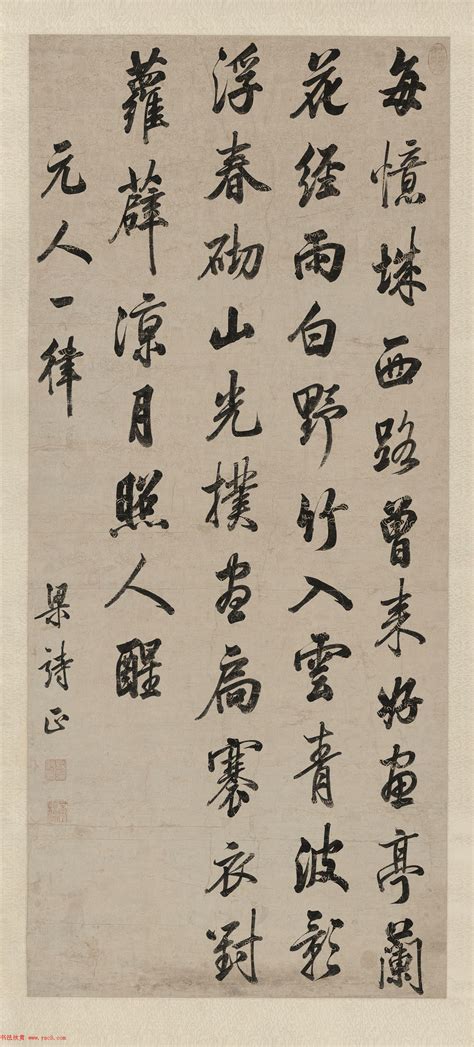 每憶城西路曾来好畫亭蘭
花經雨白野竹入雲青波影
浮春砌山光撲畫扃褰衣對
蘿薜涼月照人醒
元人一律
梁詩正
书法欣赏 www.yac8.com